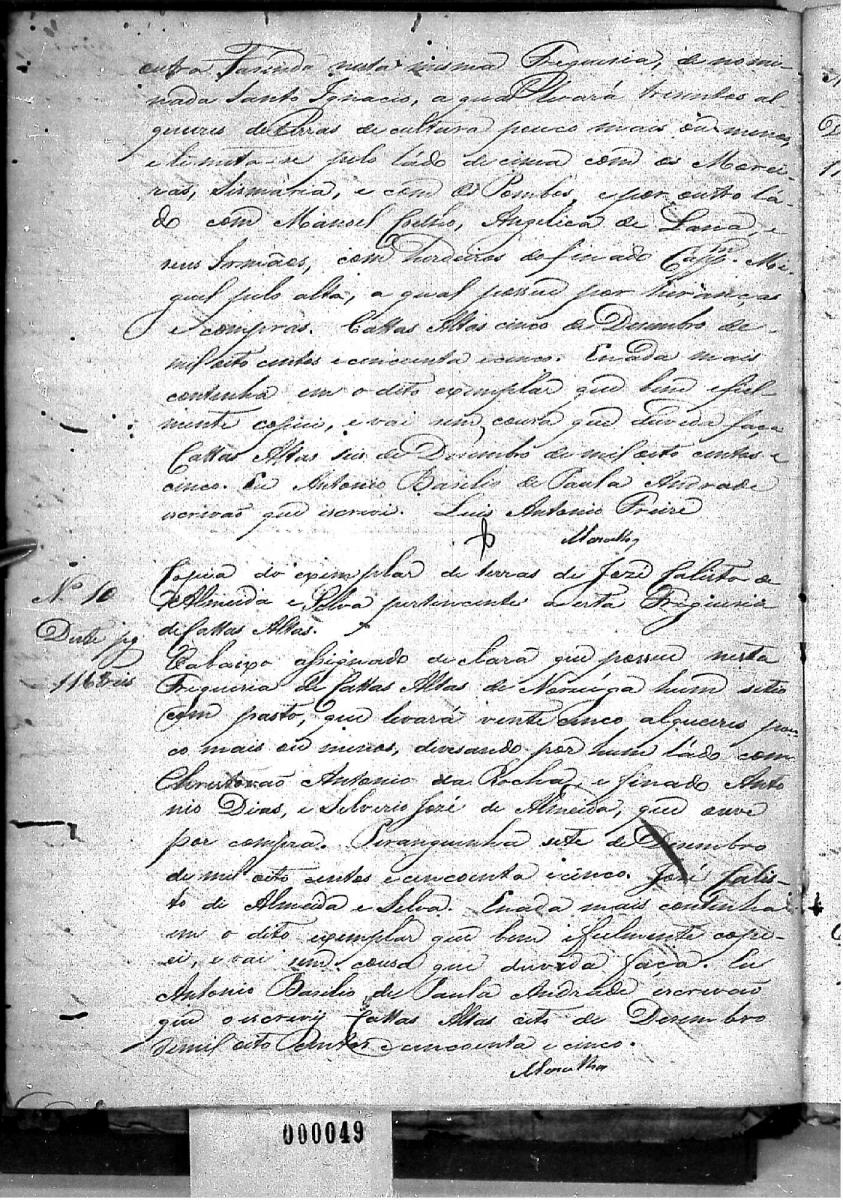 outra Fazenda nesta mesma Freguesia, de nomi-
nada Santo Ignacio, a qual levará trezentos al-
queires de terras de cultura pouco mais ou menos,
e limita-se pelo lado de cima com os Morei-
ras, Sismaria, e com os Pombos, e por outro la-
do com Manoel Coelho, Angelica de Lana, e
seus Irmãos, com herdeiros do finado Capp.m Mi-
guel pelo alto, a qual possue por heranças
e compras. Cattas Altas cinco de Desembro de
mil oito centos e cincoenta e cinco. E nada mais
continha em o dito exemplar que bem e fiel-
mente copiei, e vai sem cousa que duvida faça
Cattas Altas seis de Desembro de mil oito centos e
cinco. Eu Antonio Basilio de Paula Andrade
escrivão que escrevi. Luis Antonio Freire
Nº 10
Copia do exemplar de terras de José Calisto de
Almeida e Silva pertencente a esta Freguesia
de Cattas Altas.
Desta pg
O abaixo assignado declara que possue nesta
Freguesia de Cattas Altas de Noruega hum sitio
com pasto, que levará vente cinco alqueires pou-
co mais ou menos, devisando por hum lado com
Christovão Antonio da Rocha, e finado Anto
nio Dias, e Silverio José de Almeida, que ouve
por compra. Piranguinha sete de Desembro
de mil oito centos e cincoenta e cinco. José Calis-
to de Almeida e Silva. E nada mais continha
em o dito exemplar que bem e fielmente copi-
ei, e vai sem cousa que duvida faça. Eu
Antonio Basilio de Paula Andrade escrivão
que o escrevy Cattas Altas oito de Desembro
de mil oito centos e cincoenta e cinco.
000049